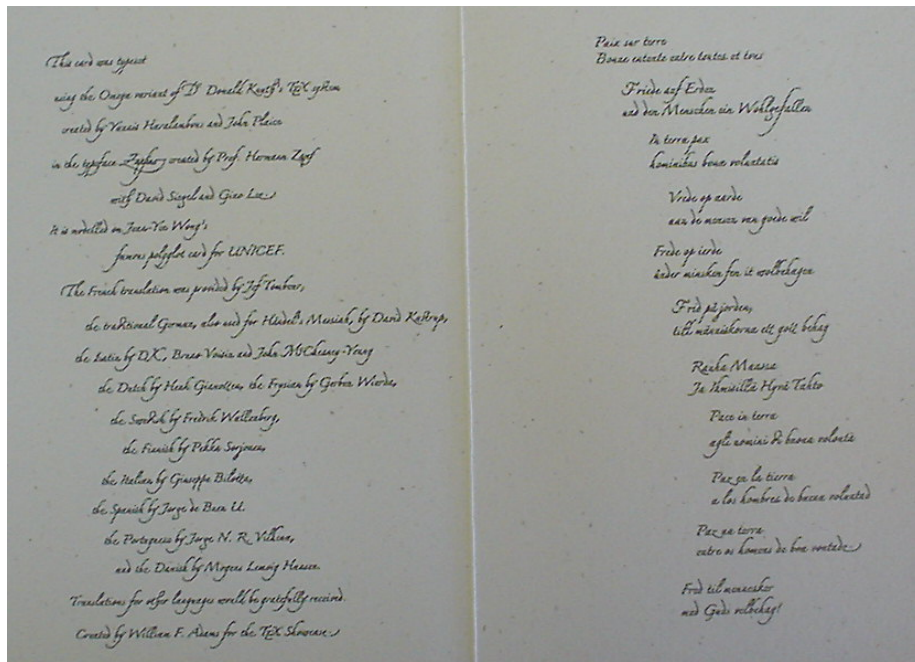 This card was typeset
using the Omega variant of Dr Donald Knuth's TEX system
created by Yannis Haralambous and John Plaice
in the typeface Zapfino created by Prof. Hermann Zapf
with David Siegel and Gino Lee
It is modelled on Jean-Yee Wong's
famous polyglot card for UNICEF.
The French translation was provided by Jef Tombeur,
the traditional German, also used for Händel's Messiah, by David Kastrup,
the Latin by DX, Bruno Voisin and John McChesney-Young
the Dutch by Henk Gianotten, the Frysian by Gerben Wierda,
the Swedish by Fredrik Wallenberg,
the Finnish by Pekka Sorjonen,
the Italian by Giuseppe Bilotta,
the Spanish by Jorge de Buen U.
the Portuguese by Jorge N. R. Vilhena,
and the Danish by Mogens Lemvig Hansen.
Translations for other languages would be gratefully received.
Created by William F. Adams for the TEX Showcase
Paix sur terre
Bonne entente entre toutes et tous
Friede auf Erden
und den Menschen ein Wohlgefallen
In terra pax
hominibus bonæ voluntatis
Vrede op aarde
aan de mensen van goede wil
Frede op ierde
ûnder minsken fen it wolbehagen
Frid på jorden,
till människorna ett gott behag
Rauha Maassa
Ja Ihmisillä Hyvä Tahto
Pace in terra
agli uomini di buona volontà
Paz en la tierra
a los hombres de buena voluntad
Paz na terra
entre os homens de boa vontade
Fred til mennesker
med Guds velbehag!